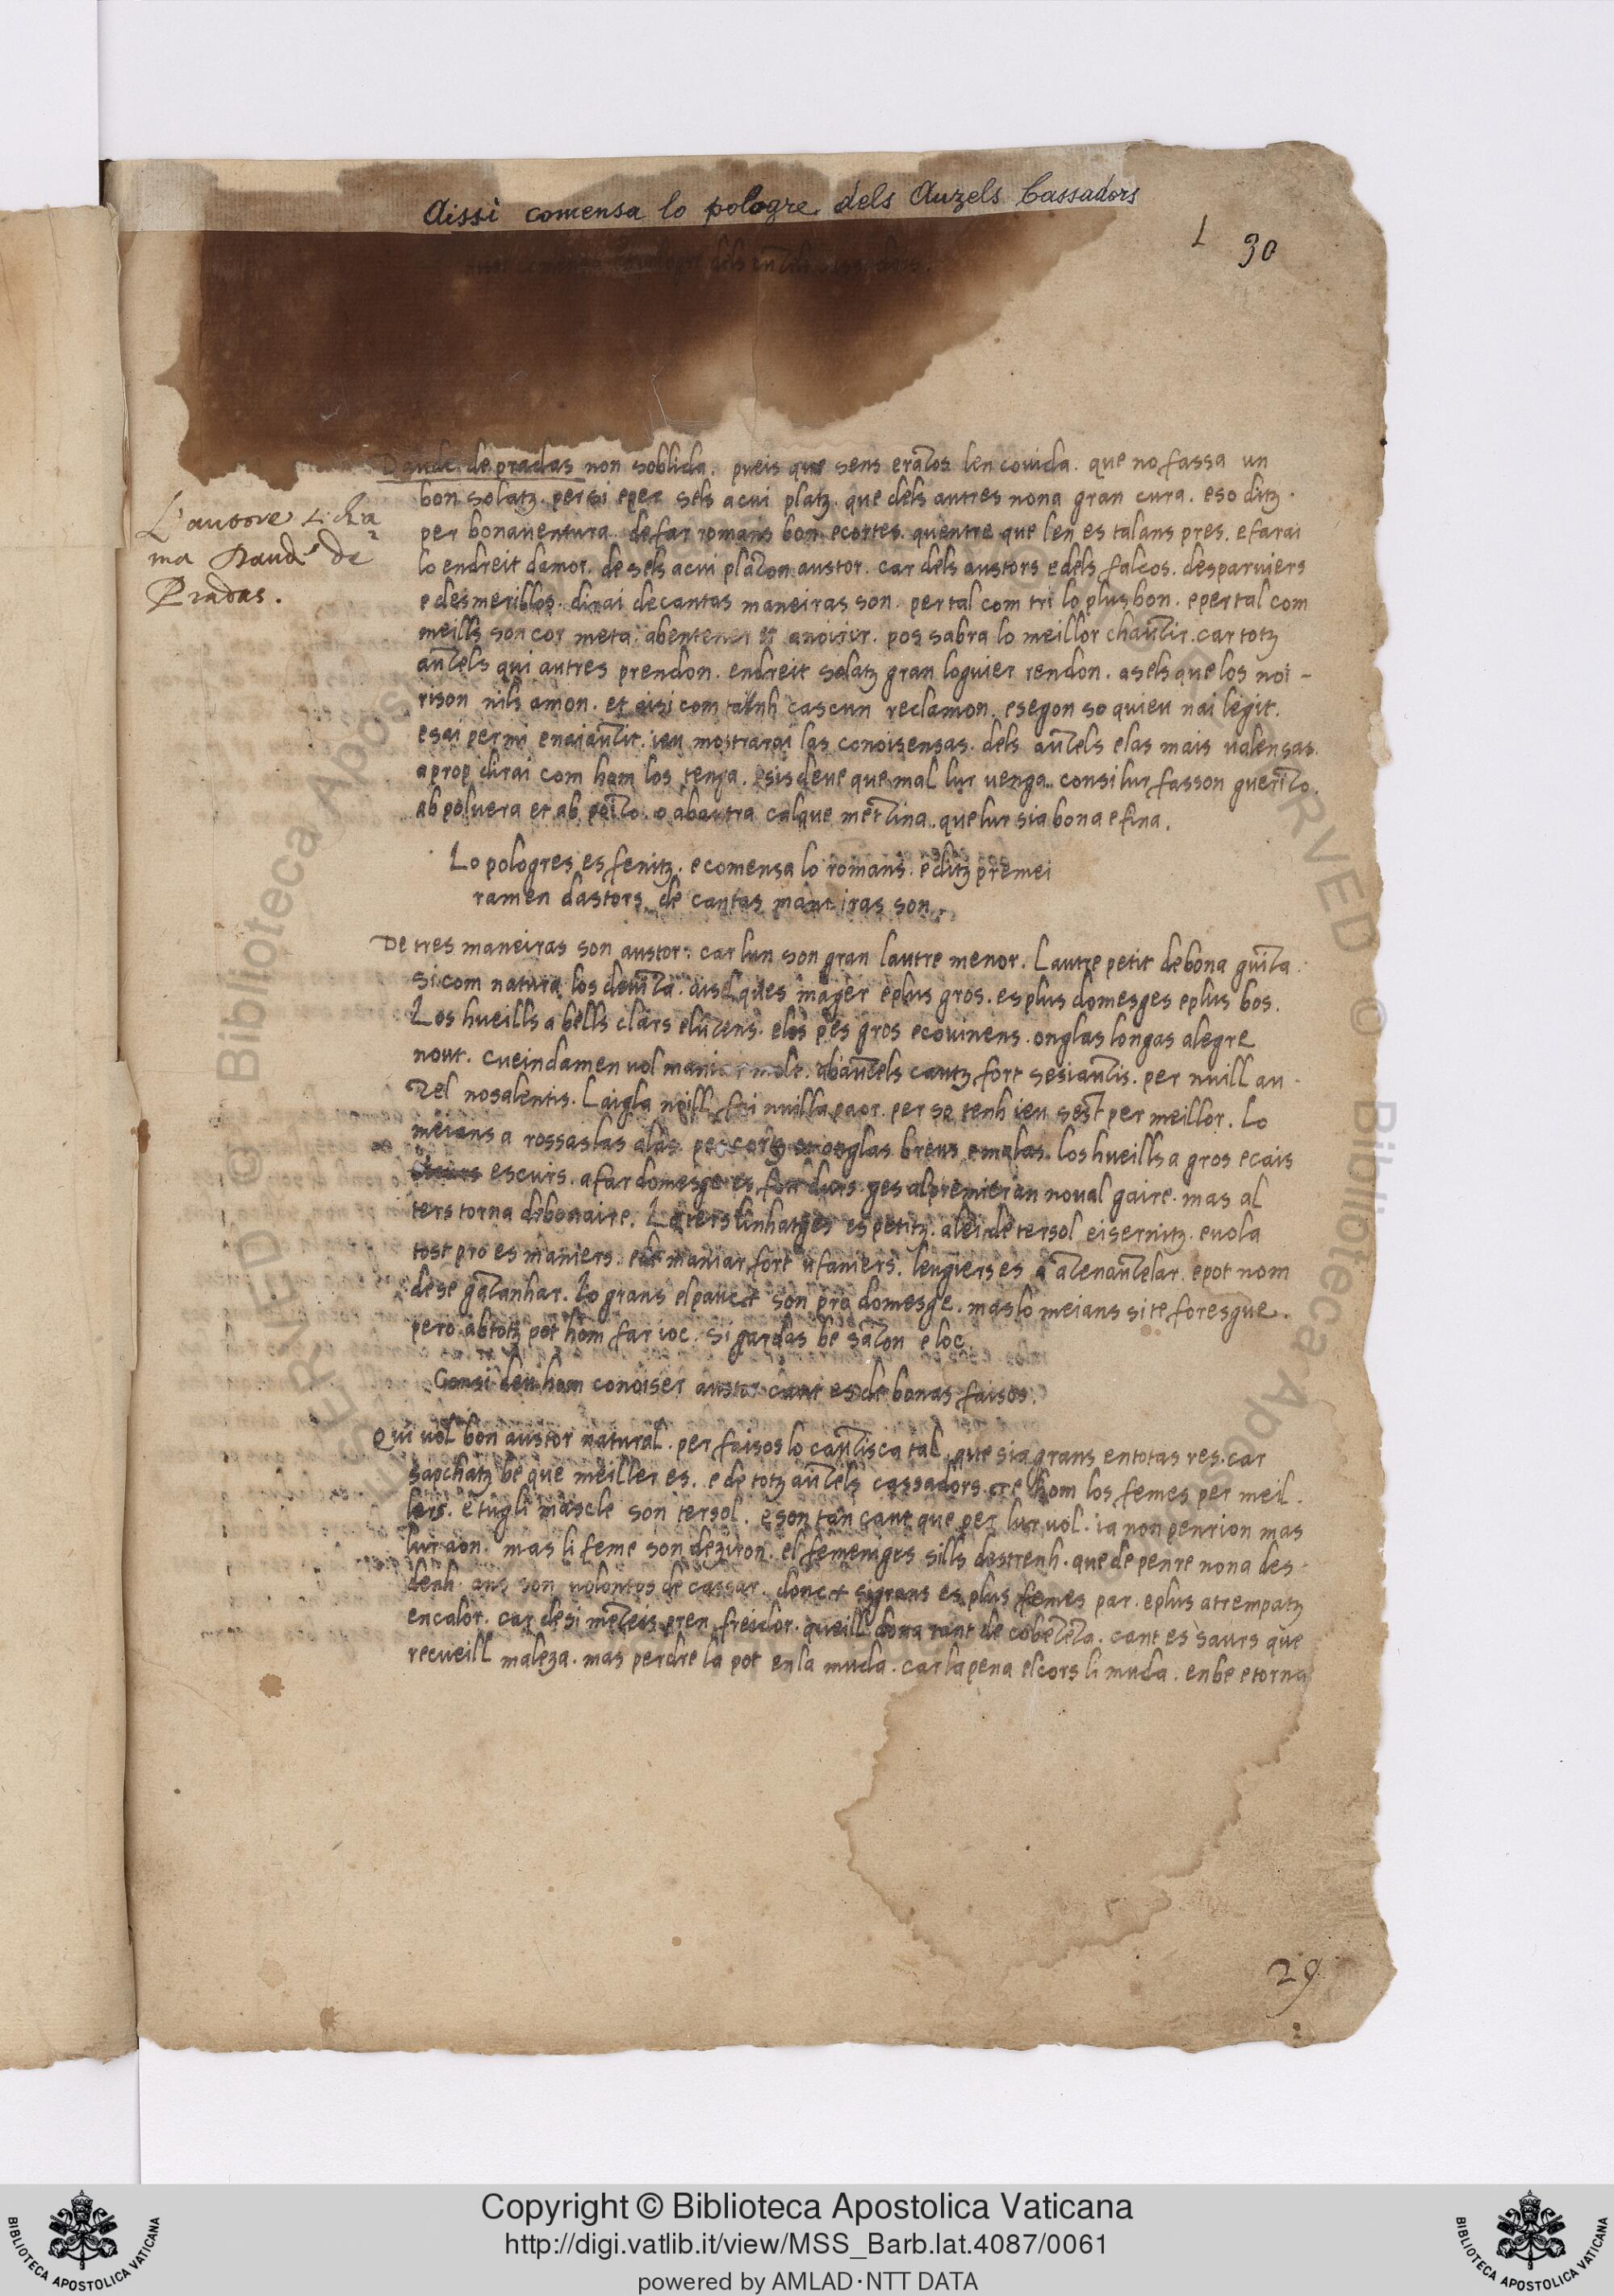 Aissi comensa lo pologre dels Auzels Cassadors
1 30
Daude de pradas non soblida. pueis que sens erazos len covida. que no fassa un
bon solatz. per si e per sels acui platz. que dels autres nona gran cura. eso ditz.
per bonaventura. de far romans bon ecortes. quentre que len es talans pres. e farai
L'autore si chia
ma Daude de
Pradas.
lo endreit damor. de sels acui plazon austor. car dels austors e dels falcos. desparviers
e desmerillos. dirai de cantas maneiras son. per tal com tri lo plus bon. e per tal com
meills son cor meta. abentener et anoirir. pos sabra lo meillor chauzir. car totz
auzels qui autres prendon. endreit solatz gran loguier rendon. asels que los noi-
rison nils amon. et aisi com tainh cascun reclamon. esegon so quieu nai legit.
esai per mi enaiauzit. ieu mostrarai las conoisensas. dels auzels elas mais valensas.
aprop dirai com hom los tenga. esis deve que mal lur venga. consi lur fasson guerizo.
ab polvera et ab poizo. o abautra calque metzina. que lur sia bona e fina.
Lo pologres es fenitz. e comensa lo romans. e ditz premei
ramen dastors de cantas maneiras son.
De tres maneiras son austor. car lun son gran lautre menor. Lautre petit de bona guiza.
si com natura los deviza. aisel ques mager e plus gros. es plus domesges e plus bos.
Los hueills a bells clars eluzens. elos pes gros ecovinens. onglas longas alegre
nout. cueindamen vol maniar molt. abauzels cautz fort sesiauzis. per nuill au-
zel nosalentis. Laigla noill fai nuilla paor. per so tenh ieu sest per meillor. Lo
meians a rossas las alas. pes cortz onglas breus emalas. los hueills a gros ecais
escurs. a far domesge es fort durs. ges al premier an noval gaire. mas al
ters torna debonaire. Lo ters linhatges es petitz. aleide tersol eisernitz. e vola
tost pro es maniers. e de maniar fort ufaniers. leugiers es a atenauzelar. e pot nom
de se gazanhar. Lo grans el paucx son pro domesge. mas lo meians site foresgue.
pero ab totz pot hom far ioc. si gardas be sazon e loc.
Consi deu hom conoiser austor cant es de bonas faisos.
Qui vol bon austor natural. per faisos lo cauzisca tal. que sia grans entotas res. car
sapchatz be que meiller es. e de totz auzels cassadors. cre hom los femes per meil-
lors. e tugli mascle son tersol. e son tan caut que per lur vol. ia non penrion mas
lur aon. mas li feme son deziron. el femeniges sills destrenh. que de penre nona des-
denh. ans son volontos de cassar. doncx si grans es plus femes par. e plus atrempatz
encalor. car desi mezeis pren freidor. queill dona tant de cobezeza. cant es saurs que
recueill maleza. mas perdre la pot en la muda. car la pena el cors li muda. enbe etorna
29
Copyright © Biblioteca Apostolica Vaticana
http://digi.vatlib.it/view/MSS_Barb.lat.4087/0061
powered by AMLAD·NTT DATA
BIBLIOTECA APOSTOLICA VATICANA
BIBLIOTECA APOSTOLICA VATICANA